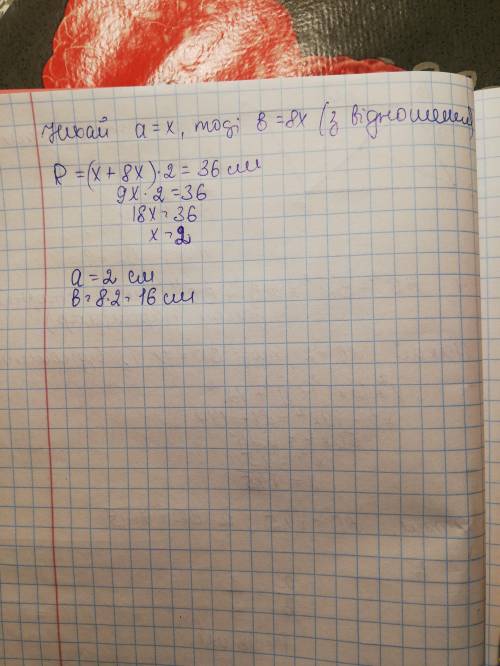 Нехай a = x, тоді в = 8x (з відношення)
P = (x + 8x) · 2 = 36 см
9x · 2 = 36
18x = 36
x = 2
a = 2 см
в = 8 · 2 = 16 см